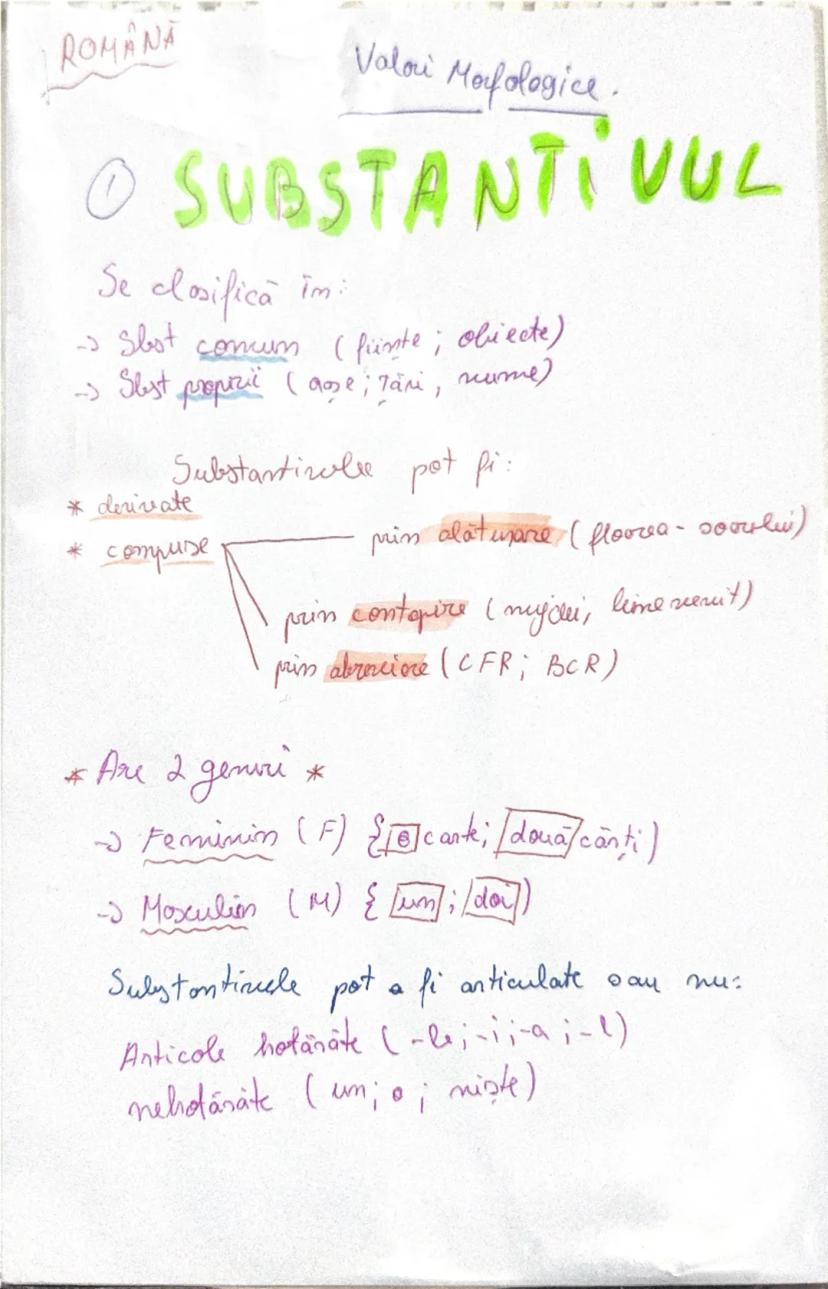 ROMÂNĂ
Valori Morfologice.
① SUBSTANTIVUL
Se clasifică în:
-> Sbst comun (ființe; obiecte)
-> Sbst proprii (orașe; țări, nume)
Substantivele pot fi:
* derivate
* compuse
prin alăturare (floarea-soarelui)
prin contopire (mujdei, binevenit)
prin abreviere (CFR; BCR)
* Are 2 genuri *
-> Feminin (F) {o carte; două cărți)
-> Masculin (M) {un; doi)
Substantivele pot a fi articulate sau nu:
Articole hotărâte (-le; -i; -a; -l)
nehotărâte (un; o; niște)